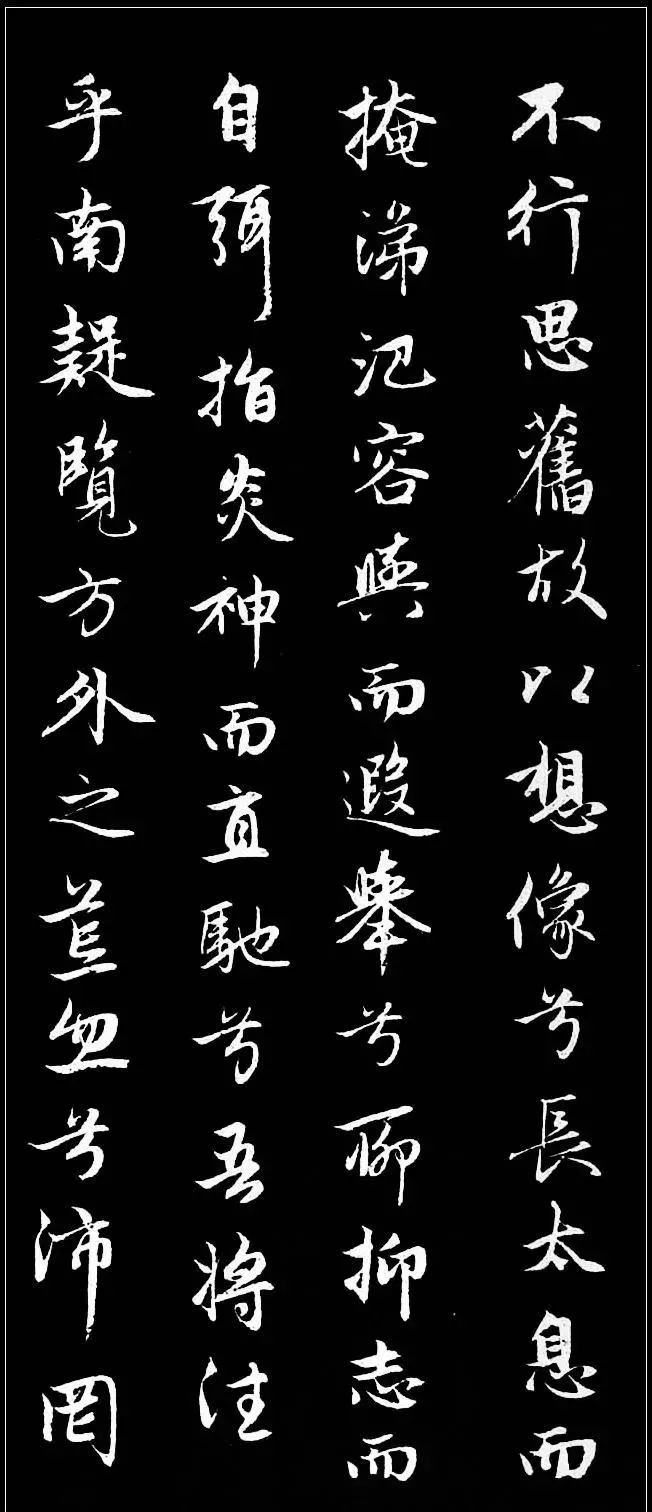 不行思舊故以想像兮長太息而
掩涕氾容與而遐舉兮聊抑志而
自弭指炎神而直馳兮吾將往
乎南疑覽方外之荒忽兮沛罔